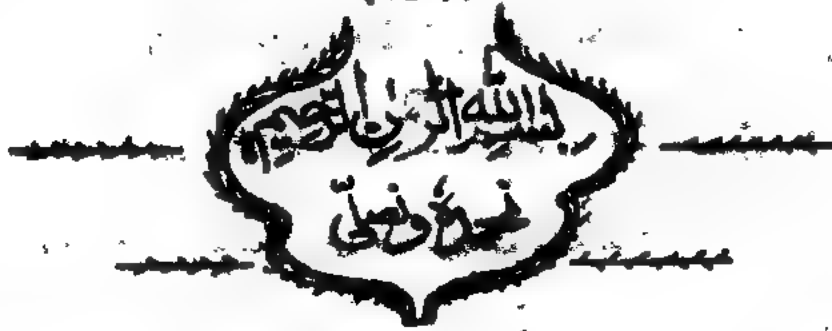 بسم الله الرحمن الرحيم
نحمدہٗ و نصلّی